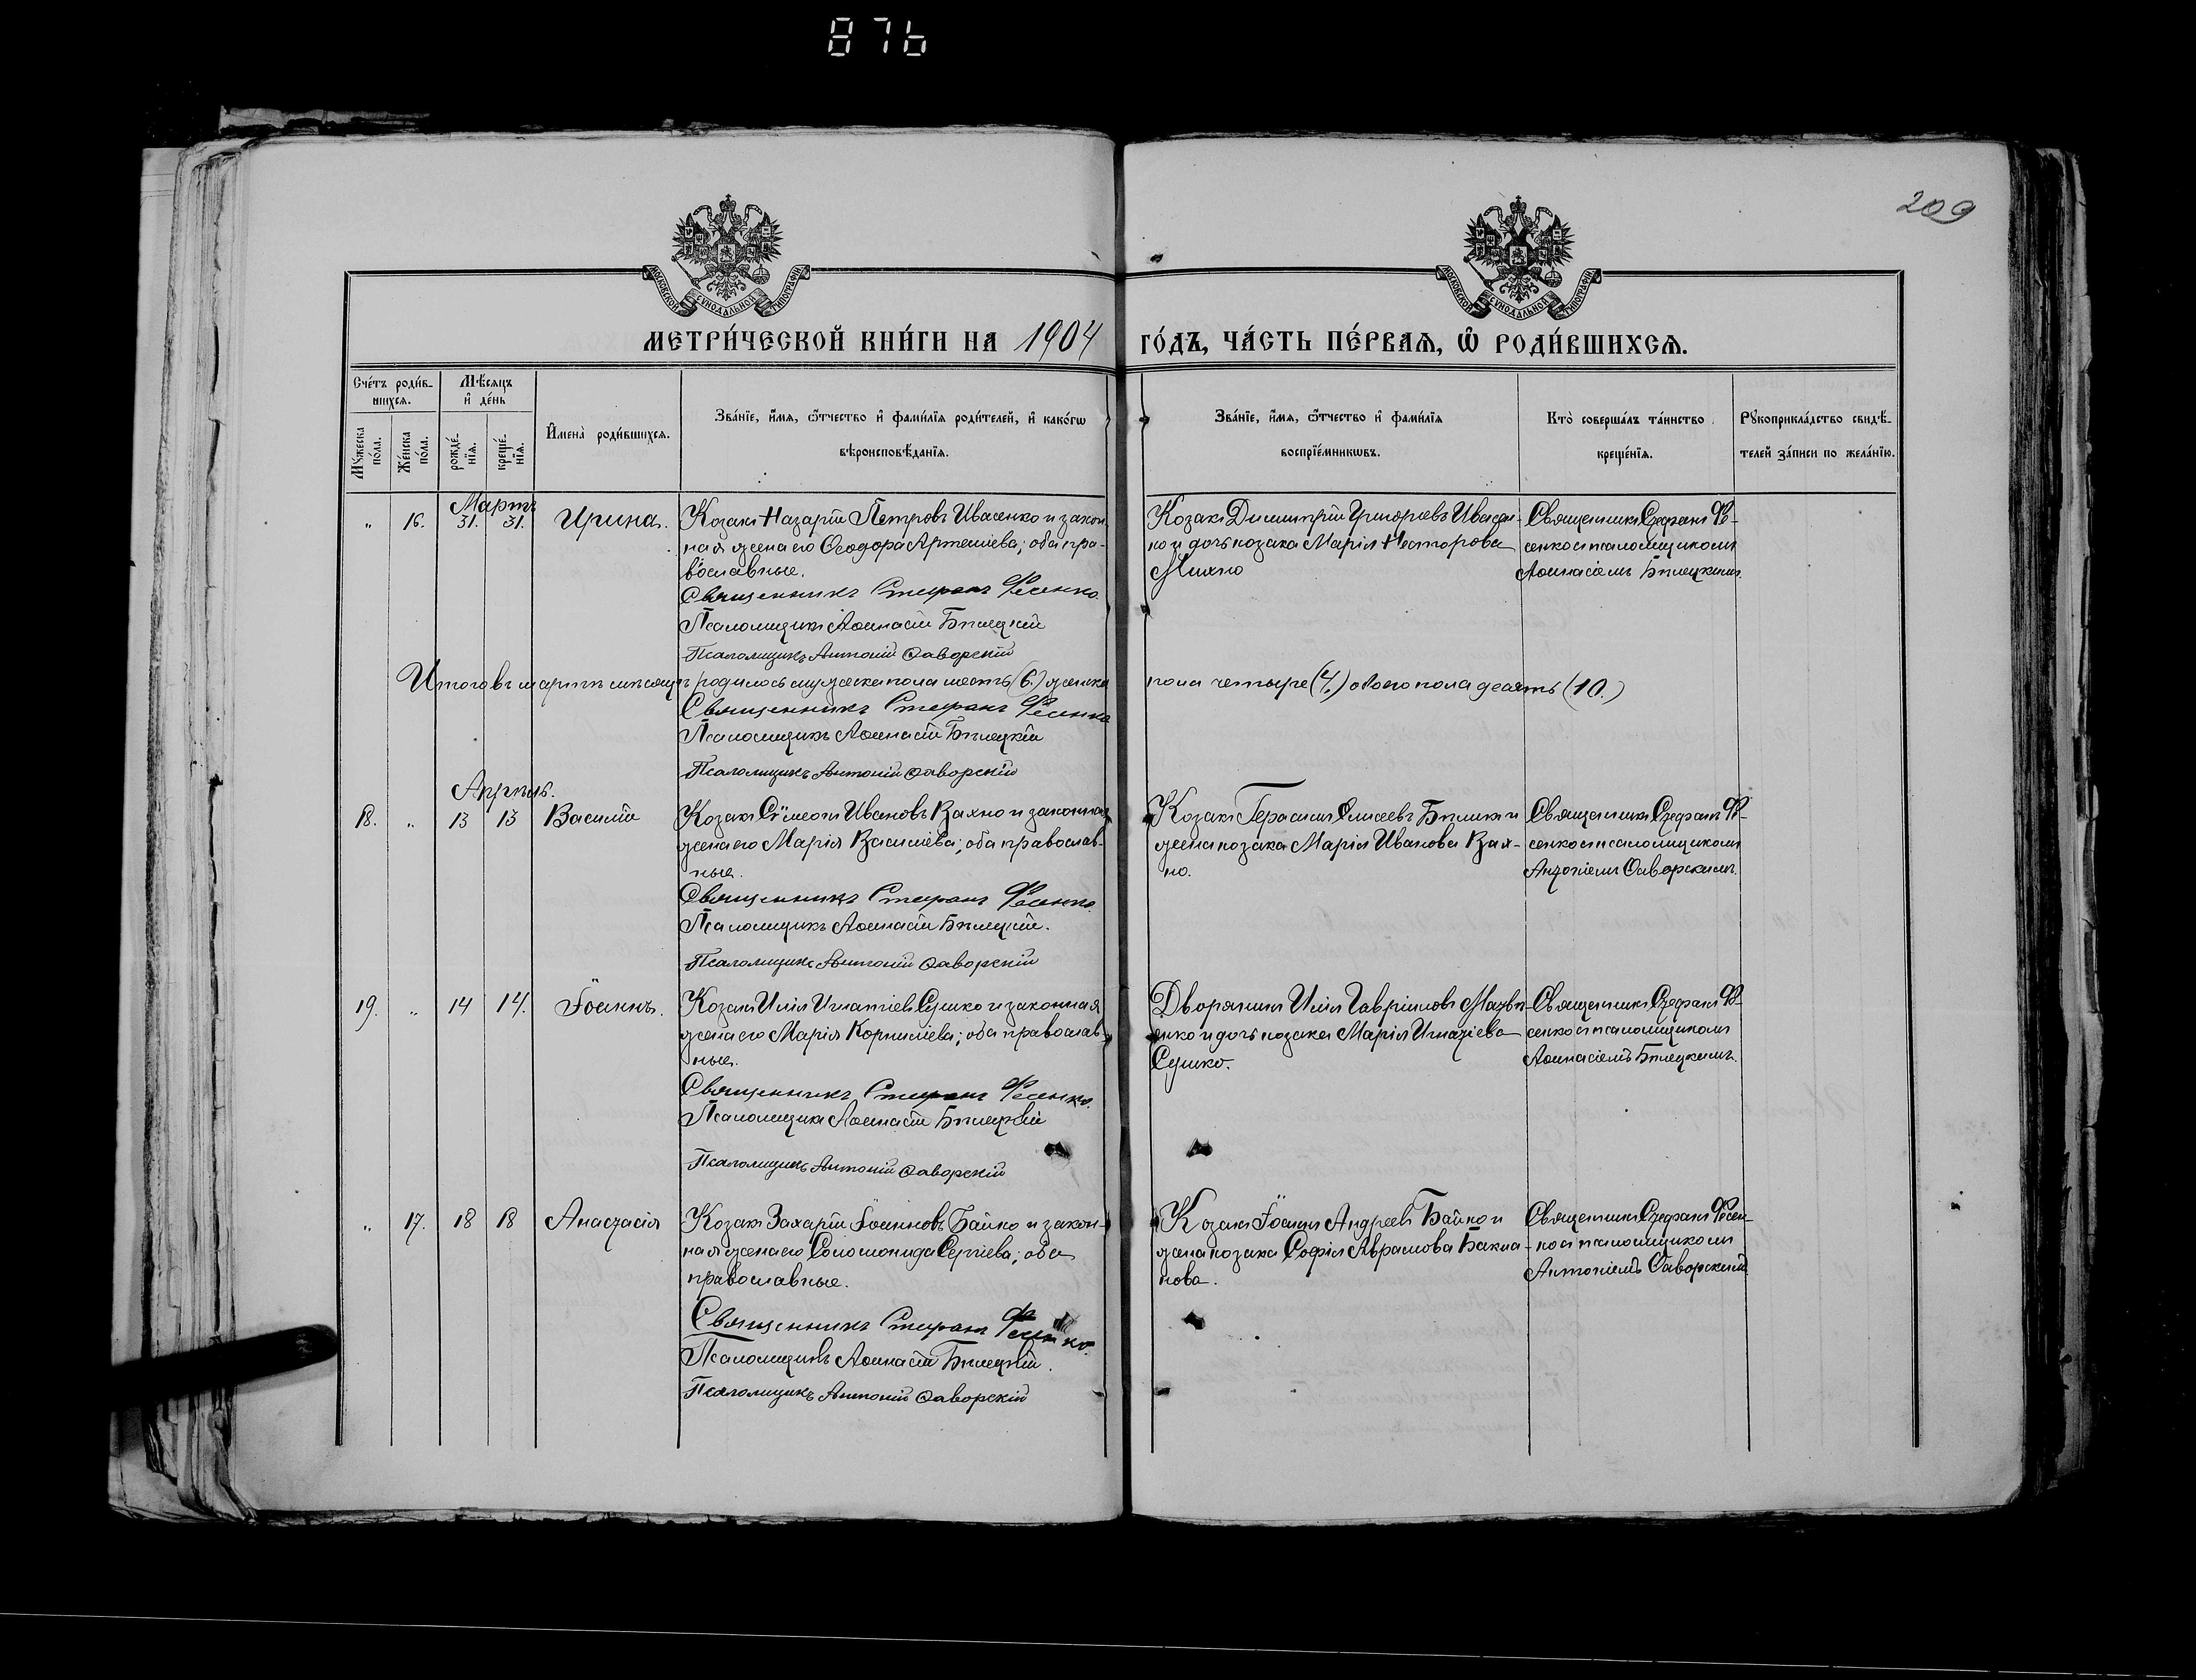 876
209
МОСКОВСКОЙ СѴНОДАЛЬНОЙ ТИПОГРАФІИ
МОСКОВСКОЙ СѴНОДАЛЬНОЙ ТИПОГРАФІИ
МЕТРИ́ЧЕСКОЙ КНИ́ГИ НА 1904 ГО́ДЪ, ЧА́СТЬ ПЕ́РВАЯ, Ѿ РОДИ́ВШИХСЯ.
Сче́тъ роди́в-
шихся.
Му́жеска по́ла.
Же́нска по́ла.
Мѣ́сяцъ
и҆ де́нь
рожде́-
нїя.
креще́-
нїя.
И҆мена̀ роди́вшихся.
Зва́нїе, и҆́мя, ѻ҆́тчество и҆ фами́лїя роди́телей, и҆ како́гѡ
вѣроисповѣ́данїя.
Зва́нїе, и҆́мя, ѻ҆́тчество и҆ фами́лїя
воспрїе́мникѡвъ.
Кто̀ соверша́лъ та́инство
креще́нїя.
Рꙋкоприкла́дство свидѣ́-
телей за́писи по жела́нїю.
Мартъ
" 16. 31. 31. Ирина.
Козакъ Назарій Петровъ Ивасенко и закон
ная жена его Ѳеодора Артемiева; оба пра-
вославные.
Священникъ Стефанъ Фесенко
Псаломщикъ Аѳанасій Бѣлецкій
Псаломщикъ Антоній Ѳаворскій
Козакъ Димитрій Григорьевъ Ивасен-
ко и дочь козака Марія Несторова
Михно
Священникъ Стефанъ Фе-
сенко съ псаломщикомъ
Аѳанасіемъ Бѣлецкимъ.
Итого въ мартѣ мѣсяцѣ родилось мужеска пола шесть (6.) женска
пола четыре (4.) обоего пола десять (10.)
Священникъ Стефанъ Фесенко
Псаломщикъ Аѳанасій Бѣлецкій
Псаломщикъ Антоній Ѳаворскій
Апрѣль.
18. " 13 13 Василій
Козакъ Сѵмеонъ Ивановъ Вахно и законная
жена его Марія Василіева; оба православ-
ные.
Священникъ Стефанъ Фесенко
Псаломщикъ Аѳанасій Бѣлецкій.
Псаломщикъ Антоній Ѳаворскій
Козакъ Герасимъ Елисеевъ Бѣлик и
жена козака Марія Иванова Вах-
но.
Священникъ Стефанъ Фе-
сенко съ псаломщикомъ
Антоніемъ Ѳаворскимъ.
19. " 14 14. Іоаннъ.
Козакъ Илія Игнатіевъ Сушко и законная
жена его Марія Корниліева; оба православ-
ные.
Священникъ Стефанъ Фесенко.
Псаломщикъ Аѳанасій Бѣлецкій
Псаломщикъ Антоній Ѳаворскій
Дворянинъ Илія Гавріиловъ
енко и дочь козака Марія Игнатіева
Сушко.
Священникъ Стефанъ Фе-
сенко съ псаломщикомъ
Аѳанасіемъ Бѣлецкимъ.
" 17. 18 18 Анастасія
Козакъ Захарій Іоанновъ Байко и закон-
ная жена его Соломонида Сергіева; оба
православные.
Священникъ Стефанъ Фесенко.
Псаломщикъ Аѳанасій Бѣлецкій.
Псаломщикъ Антоній Ѳаворскій
Козакъ Іоаннъ Андреевъ Байко и
жена козака Софія Аврамова Бакла-
нова.
Священникъ Стефанъ Фесен-
ко съ псаломщикомъ
Антоніемъ Ѳаворскимъ